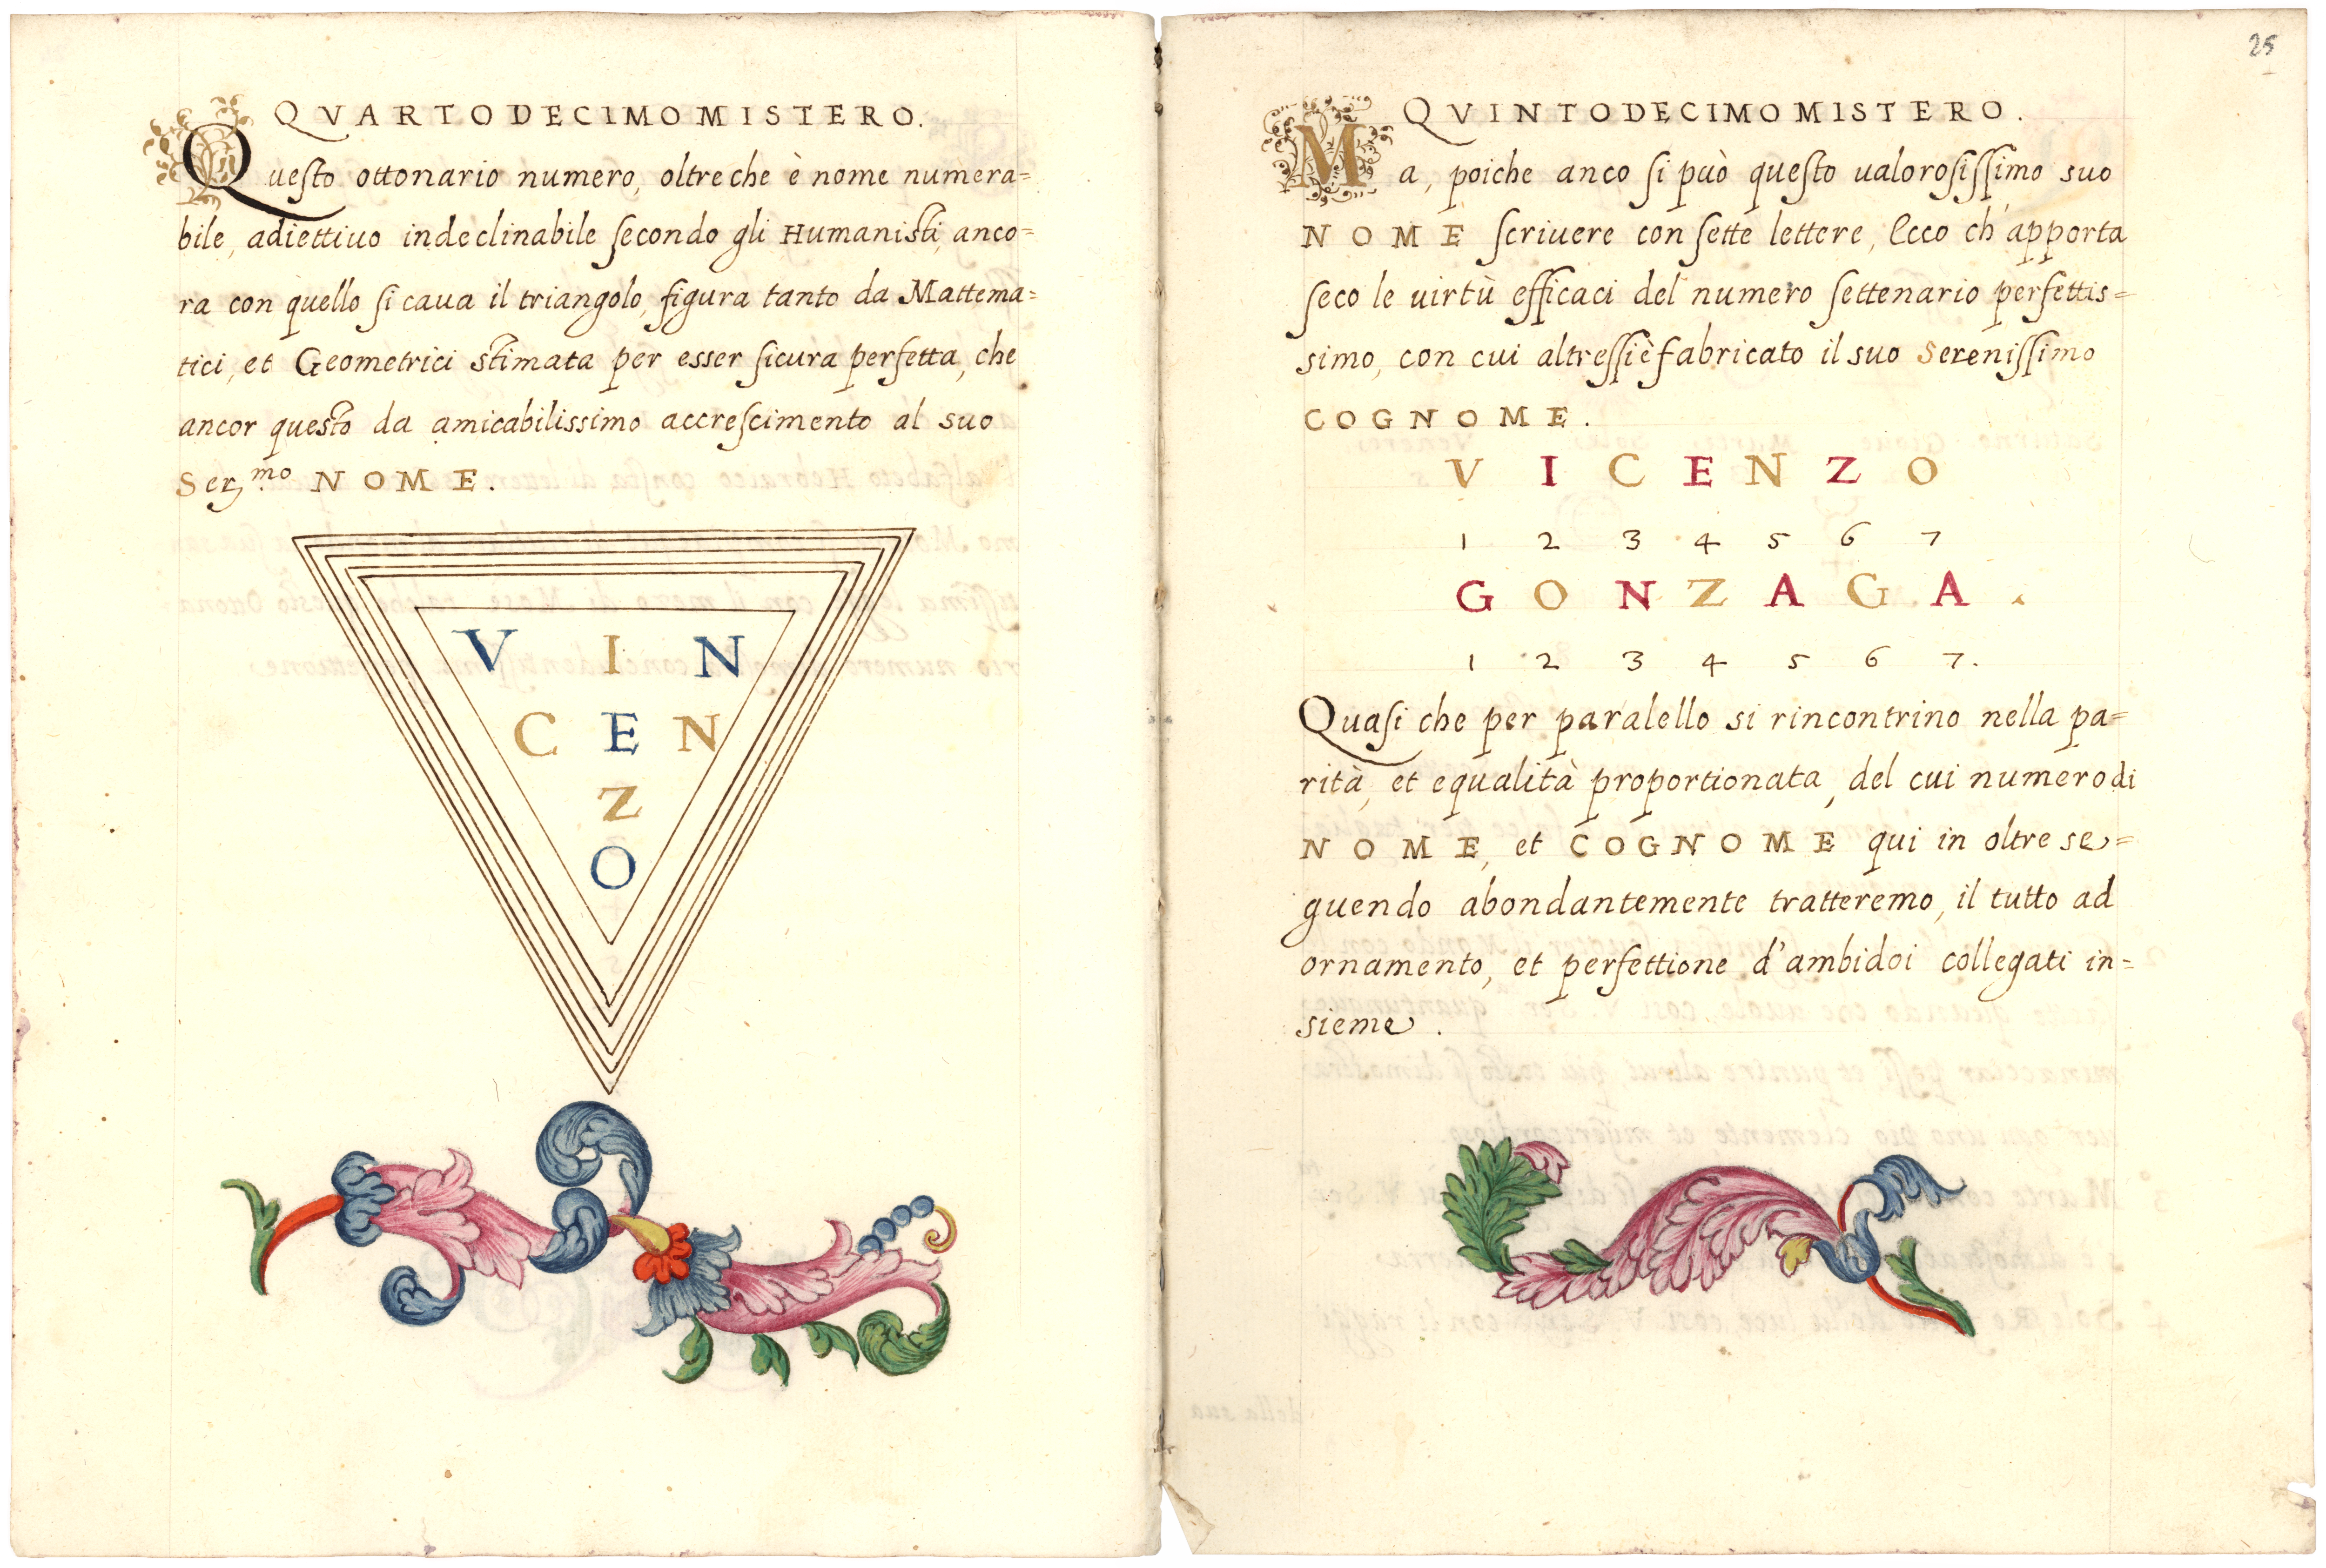 QVARTODECIMO MISTERO.
Questo ottonario numero, oltre che è nome numera=
bile, adiettiuo indeclinabile secondo gli Humanisti, anco=
ra con quello si caua il triangolo, figura tanto da Mattema=
tici, et Geometrici stimata per esser sicura perfetta, che
ancor questo da amicabilissimo accrescimento al suo
Ser.mo NOME.
V I N
C E N
Z
O
25
QVINTODECIMO MISTERO.
Ma, poiche anco si può questo ualorosissimo suo
NOME scriuere con sette lettere, Ecco ch'apporta
seco le uirtù efficaci del numero settenario perfettis=
simo, con cui altressi è fabricato il suo Serenissimo
COGNOME.
V I C E N Z O
1 2 3 4 5 6 7
G O N Z A G A.
1 2 3 4 5 6 7.
Quasi che per paralello si rincontrino nella pa=
rità, et equalità proportionata, del cui numero di
NOME, et COGNOME qui in oltre se=
guendo abondantemente tratteremo, il tutto ad
ornamento, et perfettione d'ambidoi collegati in=
sieme.